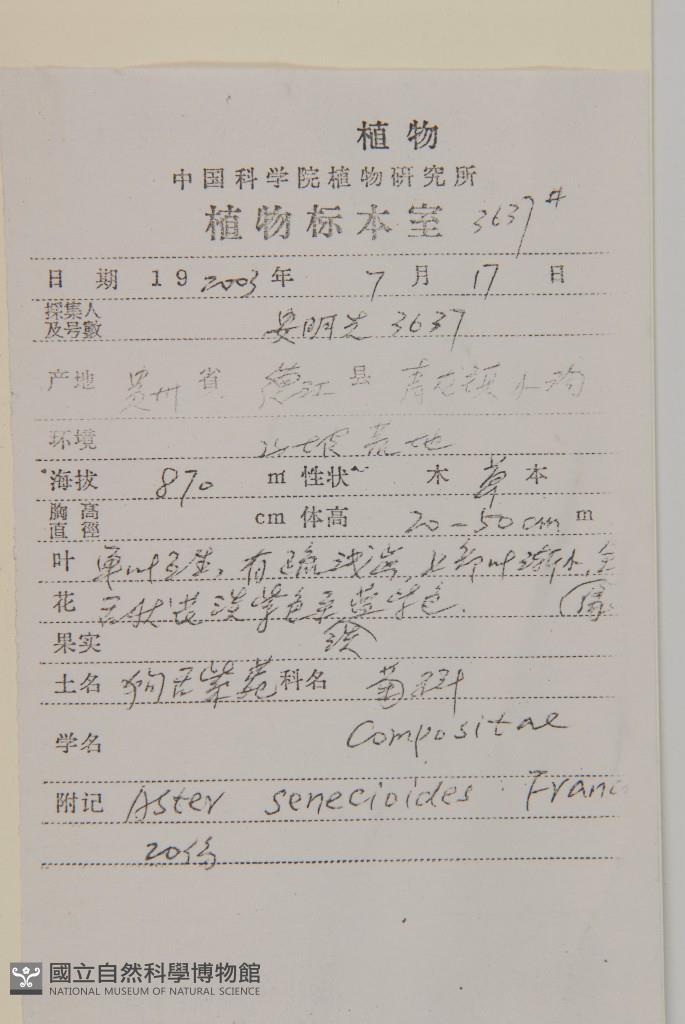 植物
中国科学院植物研究所
植物标本室 3637#
日期 19 2003年 7月 17日
採集人及号數 安明先 3637
产地 贵州省 德江县 青龙镇
环境 山坡荒地
海拔 870 m 性状 木 草 本
胸高直徑 cm 体高 20-50cm m
叶 单叶互生, 有疏浅齿, 上部叶渐小, 全
花 舌状花淡紫色至蓝紫色.
果实
土名 狗舌紫菀 科名 菊科
学名 Compositae
附记 Aster senecioides Franc
20份
國立自然科學博物館
NATIONAL MUSEUM OF NATURAL SCIENCE